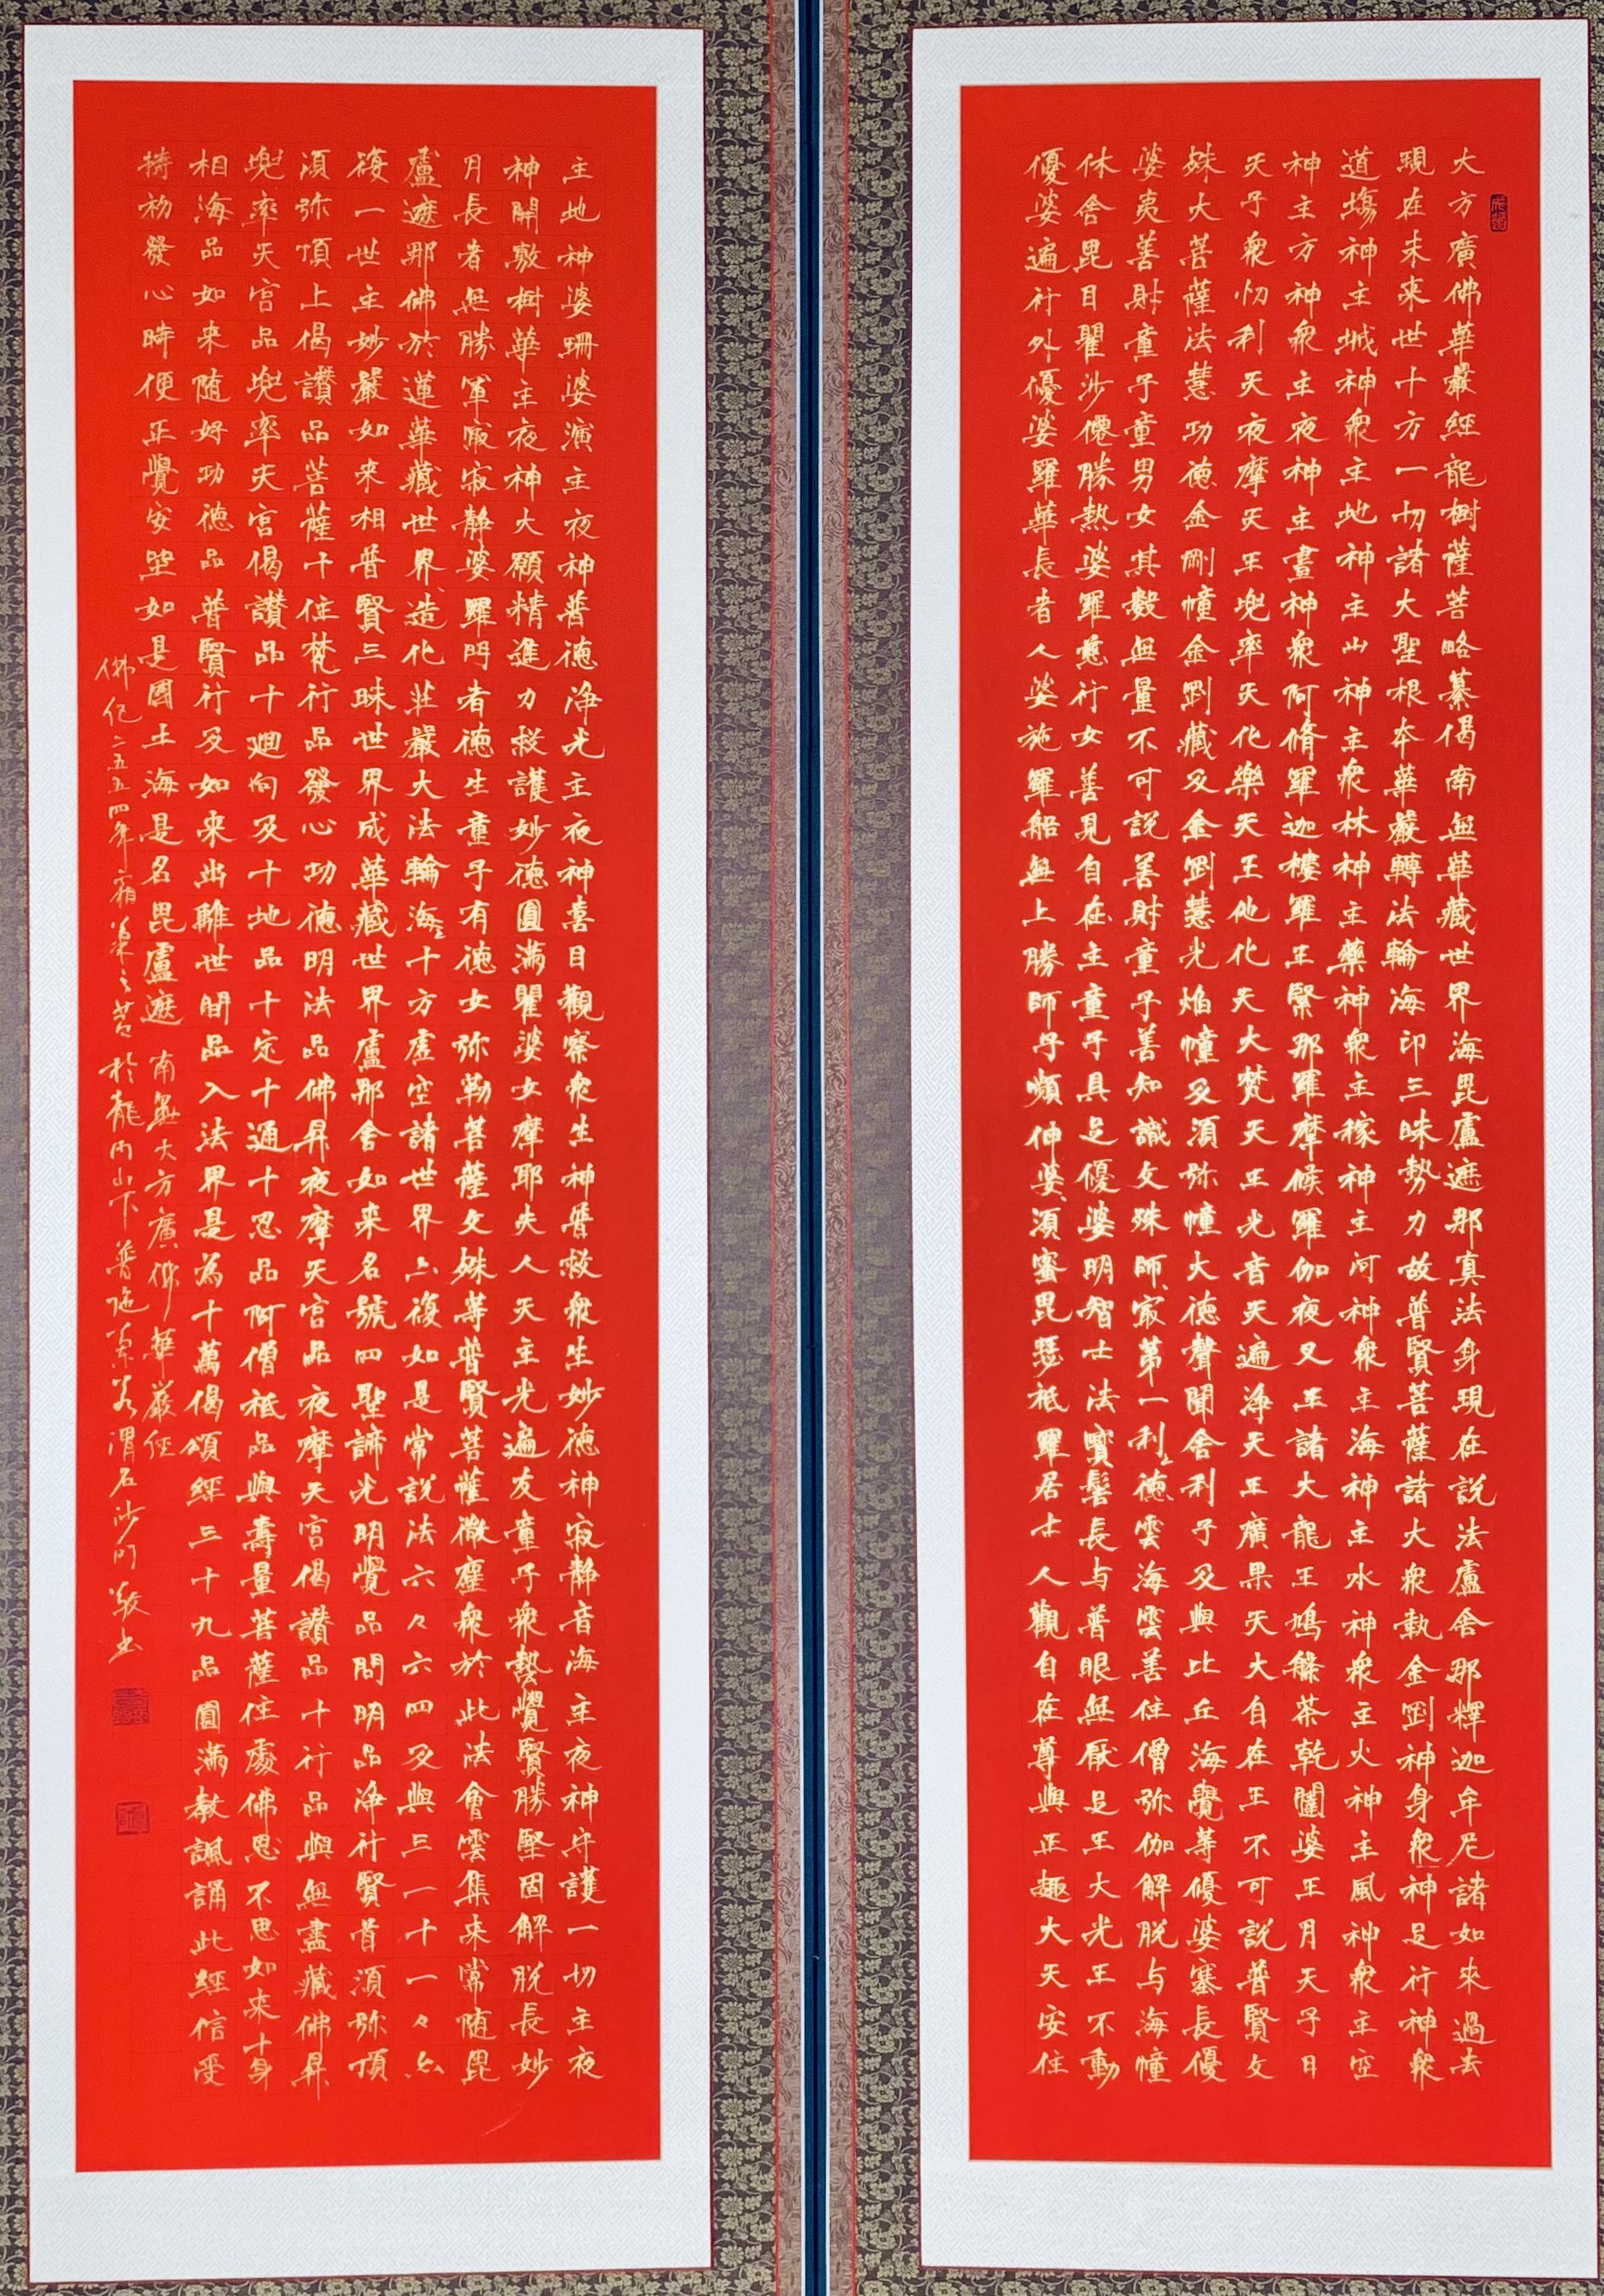 大方廣佛華嚴經龍樹薩菩略纂偈南無華藏世界海毘盧遮那真法身現在説法盧舍那釋迦牟尼諸如來過去
現在未来世十方一切諸大聖根本華嚴轉法輪海印三昧勢力故普賢菩薩諸大衆執金剛神身衆神足行神衆
道場神主城神衆主地神主山神主衆林神主藥神衆主稼神主河神衆主海神主水神衆主火神主風神衆主空
神主方神衆主夜神主晝神衆阿脩羅迦樓羅王緊那羅摩候羅伽夜叉王諸大龍王鳩槃茶乾闥婆王月天子日
天子衆忉利天夜摩天王兜率天化樂天王他化天大梵天王光音天遍淨天王廣果天大自在王不可説普賢文
殊大菩薩法慧功徳金剛幢金剛藏及金剛慧光焔幢及須弥幢大徳聲聞舍利子及與比丘海覺等優婆塞長優
婆夷善財童子童男女其數無量不可説善財童子善知識文殊師最第一利徳雲海雲善住僧弥伽解脱与海幢
休舍毘目瞿沙僊勝熱婆羅慈行女善見自在主童子具足優婆明智士法寶髻長与普眼無厭足王大光王不動
優婆遍行外優婆羅華長者人婆施羅船無上勝師子嚬伸婆須蜜毘瑟祇羅居士人觀自在尊與正趣大天安住
主地神婆珊婆演主夜神普德淨光主夜神喜目觀察衆生神普救衆生妙德神寂静音海主夜神守護一切主夜
神開敷樹華主夜神大願精進力救護妙德圓滿瞿婆女摩耶夫人天主光遍友童子衆藝覺賢勝堅固解脱長妙
月長者無勝軍㝡寂静婆羅門者德生童子有德女弥勒菩薩文殊等普賢菩薩微塵衆於此法會雲集来常随毘
盧遮那佛於蓮華藏世界造化莊嚴大法輪海十方虚空諸世界亦復如是常説法六々六四及與三一十一々亦
復一世主妙嚴如来相普賢三昧世界成華藏世界盧那舍如来名號四聖諦光明覺品問明品淨行賢首須弥頂
須弥頂上偈讃品菩薩十住梵行品發心功德明法品佛昇夜摩天宮品夜摩天宮偈讃品十行品與無盡藏佛昇
兜率天宮品兜率天宮偈讃品十廻向及十地品十定十通十忍品阿僧祇品與壽量菩薩住處佛思不思如来十身
相海品如来随好功德品普賢行及如来出離世間品入法界是為十萬偈頌經三十九品圓滿教諷誦此經信受
持初發心時便正覺安坐如是國土海是名毘盧遮 南無大方廣佛華嚴經
佛紀二五五四年 於龍門山下普 渭石沙門敬書